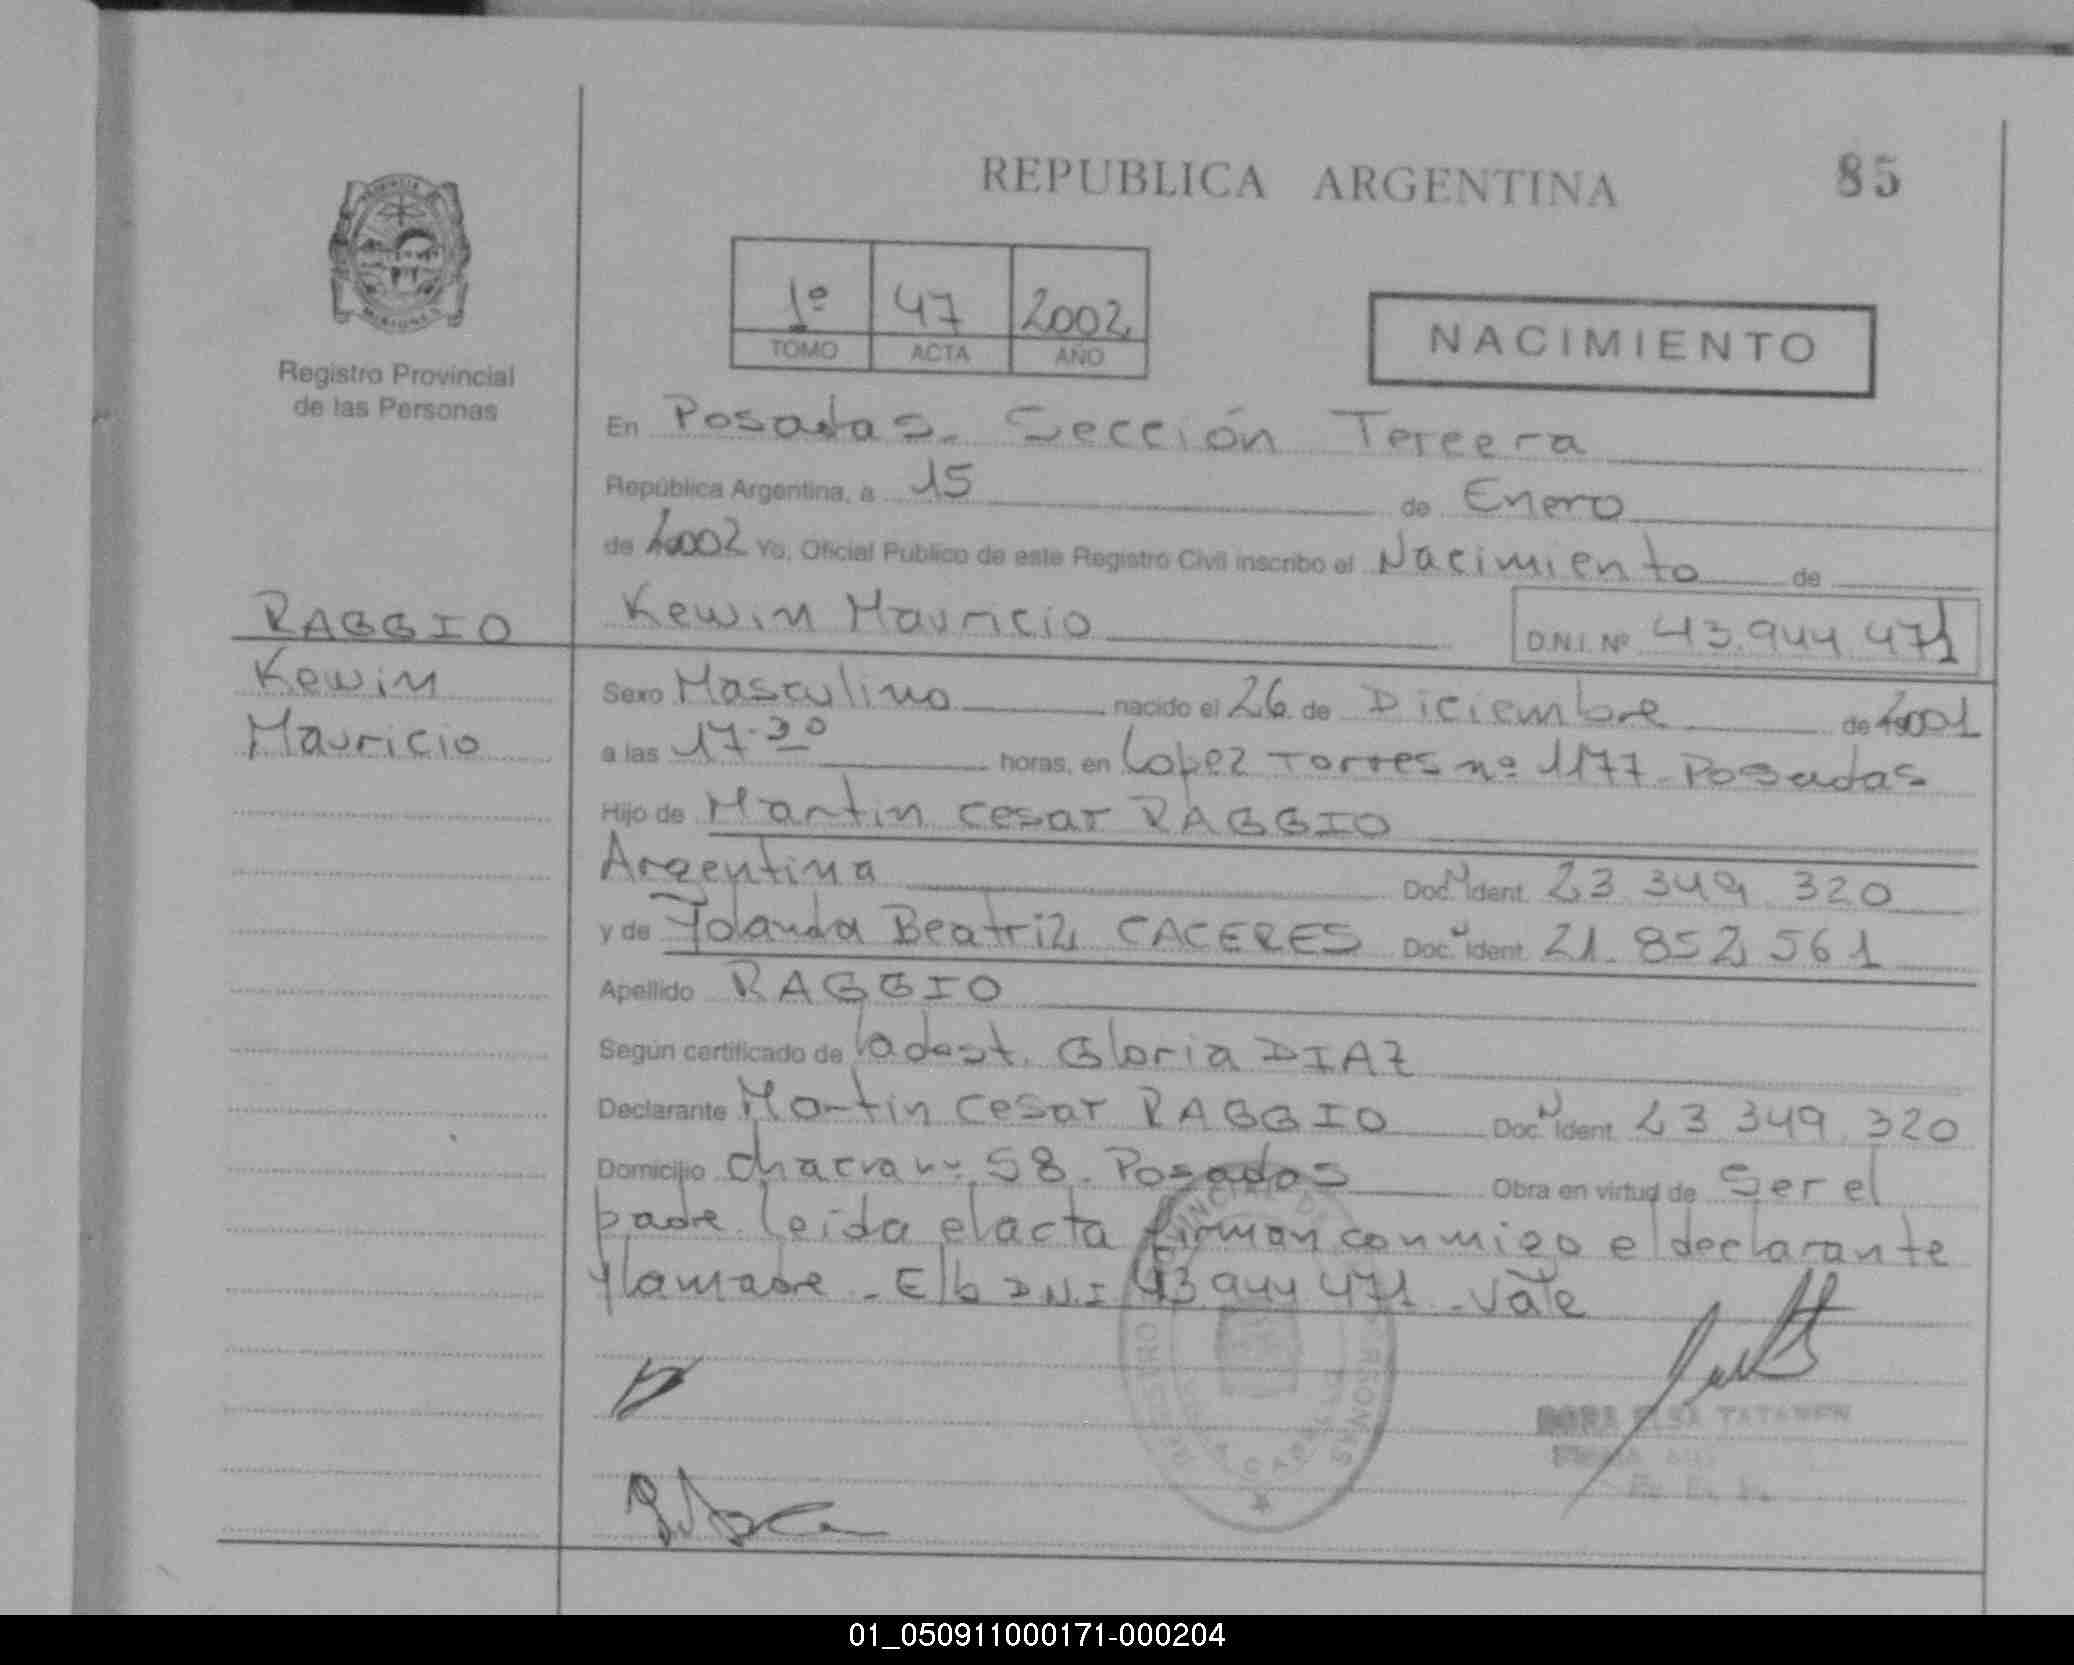 REPUBLICA ARGENTINA
85
1º 47 2002
TOMO ACTA AÑO
NACIMIENTO
Registro Provincial
de las Personas
En Posadas. Sección Tercera
República Argentina, a 15 de Enero
de 2002 Yo, Oficial Público de este Registro Civil inscribo el Nacimiento de
RAGGIO
Kewin Mauricio
D.N.I. Nº 43.944.471
Kewin
Mauricio
Sexo Masculino nacido el 26 de Diciembre de 2001
a las 17.30 horas, en Lopez Torres nº 1177 Posadas
Hijo de Martin Cesar RAGGIO
Argentina Doc. N Ident. 23.349.320
y de Yolanda Beatriz CACERES Doc. N Ident. 21.852.561
Apellido RAGGIO
Según certificado de la obst. Gloria DIAZ
Declarante Martin Cesar RAGGIO Doc. N Ident. 23.349.320
Domicilio chacra nº 58. Posadas Obra en virtud de Ser el
padre. leida el acta firman conmigo el declarante
y la madre - E/b D.N.I 43.944.471 - Vale
01_050911000171-000204